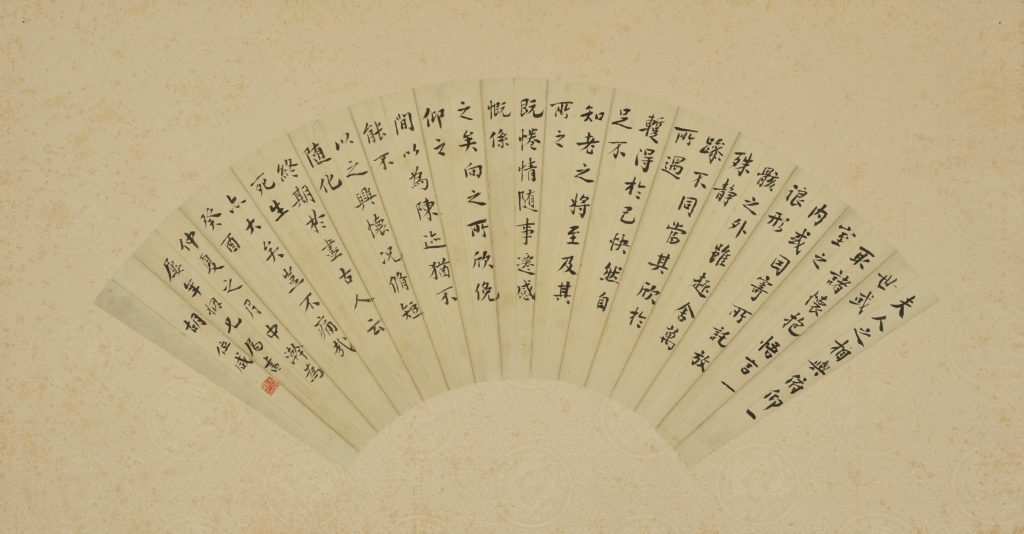 夫人之相與俯仰一
世或
取諸懷抱悟言一
室之
內或因寄所託放
浪形
骸之外雖趣舍萬
殊靜
躁不同當其欣於
所遇
暫得於己快然自
足不
知老之將至及其
所之
既惓情隨事遷感
慨係
之矣向之所欣俛
仰之
間以為陳迹猶不
能不
以之興懷況脩短
隨化
終期於盡古人云
死生
亦大矣豈不痛哉
癸酉
仲夏之月中澣為
年姻兄屬書
胡位咸